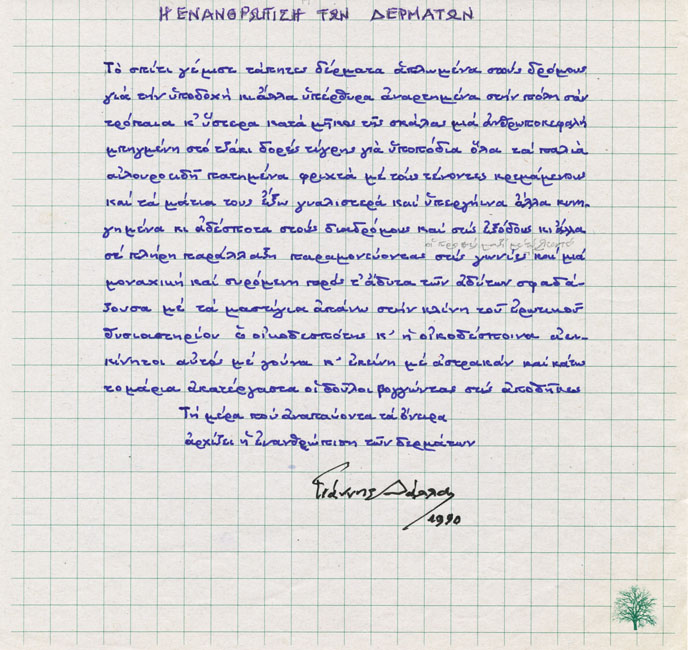 Η ΕΝΑΝΘΡΩΠΙΣΗ ΤΩΝ ΔΕΡΜΑΤΩΝ
Τὸ σπίτι γέμισε τάπητες δέρματα ἁπλωμένα στοὺς δρόμους
γιὰ τὴν ὑποδοχὴ κι ἄλλα ὑπέρθυρα ἀναρτημένα στὴν πόλη σὰν
τρόπαια κ' ὕστερα κατὰ μῆκος τῆς σκάλας μιὰ ἀνθρωποκεφαλὴ
μπηγμένη στὸ τζάκι δορὲς τίγρης γιὰ ὑποπόδια ὅλα τὰ παλιὰ
αἰλουροειδῆ πατημένα φριχτὰ μὲ τοὺς τένοντες κρεμάμενους
καὶ τὰ μάτια τους ἔξω γυαλιστερὰ καὶ ὑπεργήινα ἄλλα κυνη-
γημένα κι ἀδέσποτα στοὺς διαδρόμους καὶ στὶς ἐξόδους κι ἄλλα
σὲ πλήρη παράλλαξη παραμονεύοντας στὶς γωνίες καὶ μιὰ
μοναχικὴ καὶ συρόμενη πρὸς τ' ἄδυτα τῶν ἀδύτων σφαδά-
ζουσα μὲ τὰ μαστίγια ἀπάνω στὴν κλίνη τοῦ ἐρωτικοῦ
θυσιαστηρίου ὁ οἰκοδεσπότης κ' ἡ οἰκοδέσποινα ἀει-
κίνητοι αὐτὸς μὲ γούνα κ' ἐκείνη μὲ ἀστρακὰν καὶ κάτω
τομάρια ἀκατέργαστα οἱ δοῦλοι βογγώντας στὶς ἀποθῆκες
Τὴ μέρα ποὺ ἀναπαύονται τὰ ὄνειρα
ἀρχίζει ἡ ἐνανθρώπιση τῶν δερμάτων
Γιάννης Δάλλας
1990